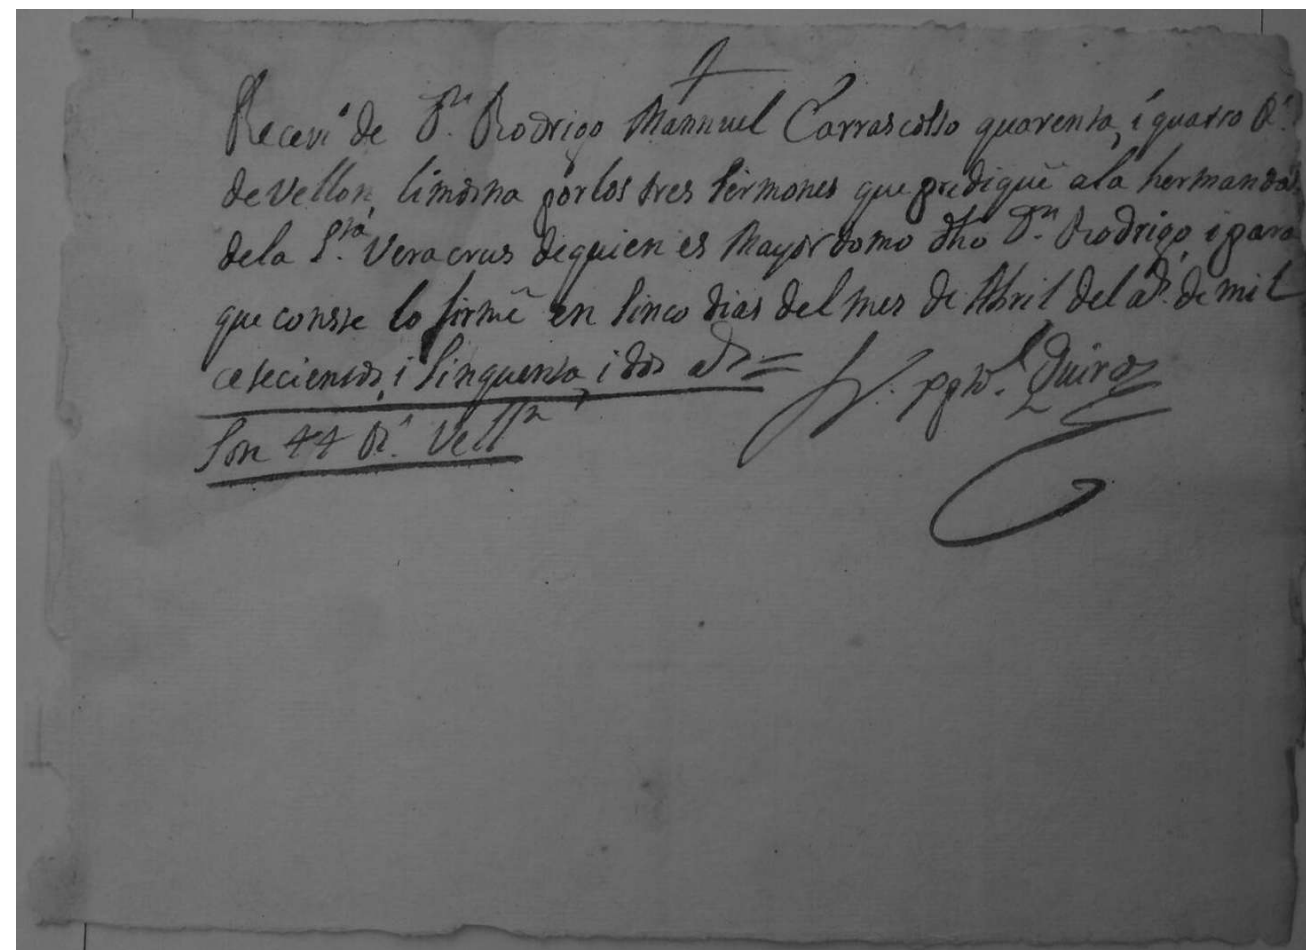 Recevi de Dn. Rodrigo Mannuel Carrascosso quarenta, i quatro Rs.
de Vellon, limosna por los tres sermones que prediquè a la hermandad
de la Sta. Veracrus de quien es Mayordomo dho Dn. Rodrigo, i para
que conste lo firmè en sinco dias del mes de Abril del aº. de mil
cetecientos, i sinquenta, i dos as =
Fr. Quiros
Son 44 Rs. Velln